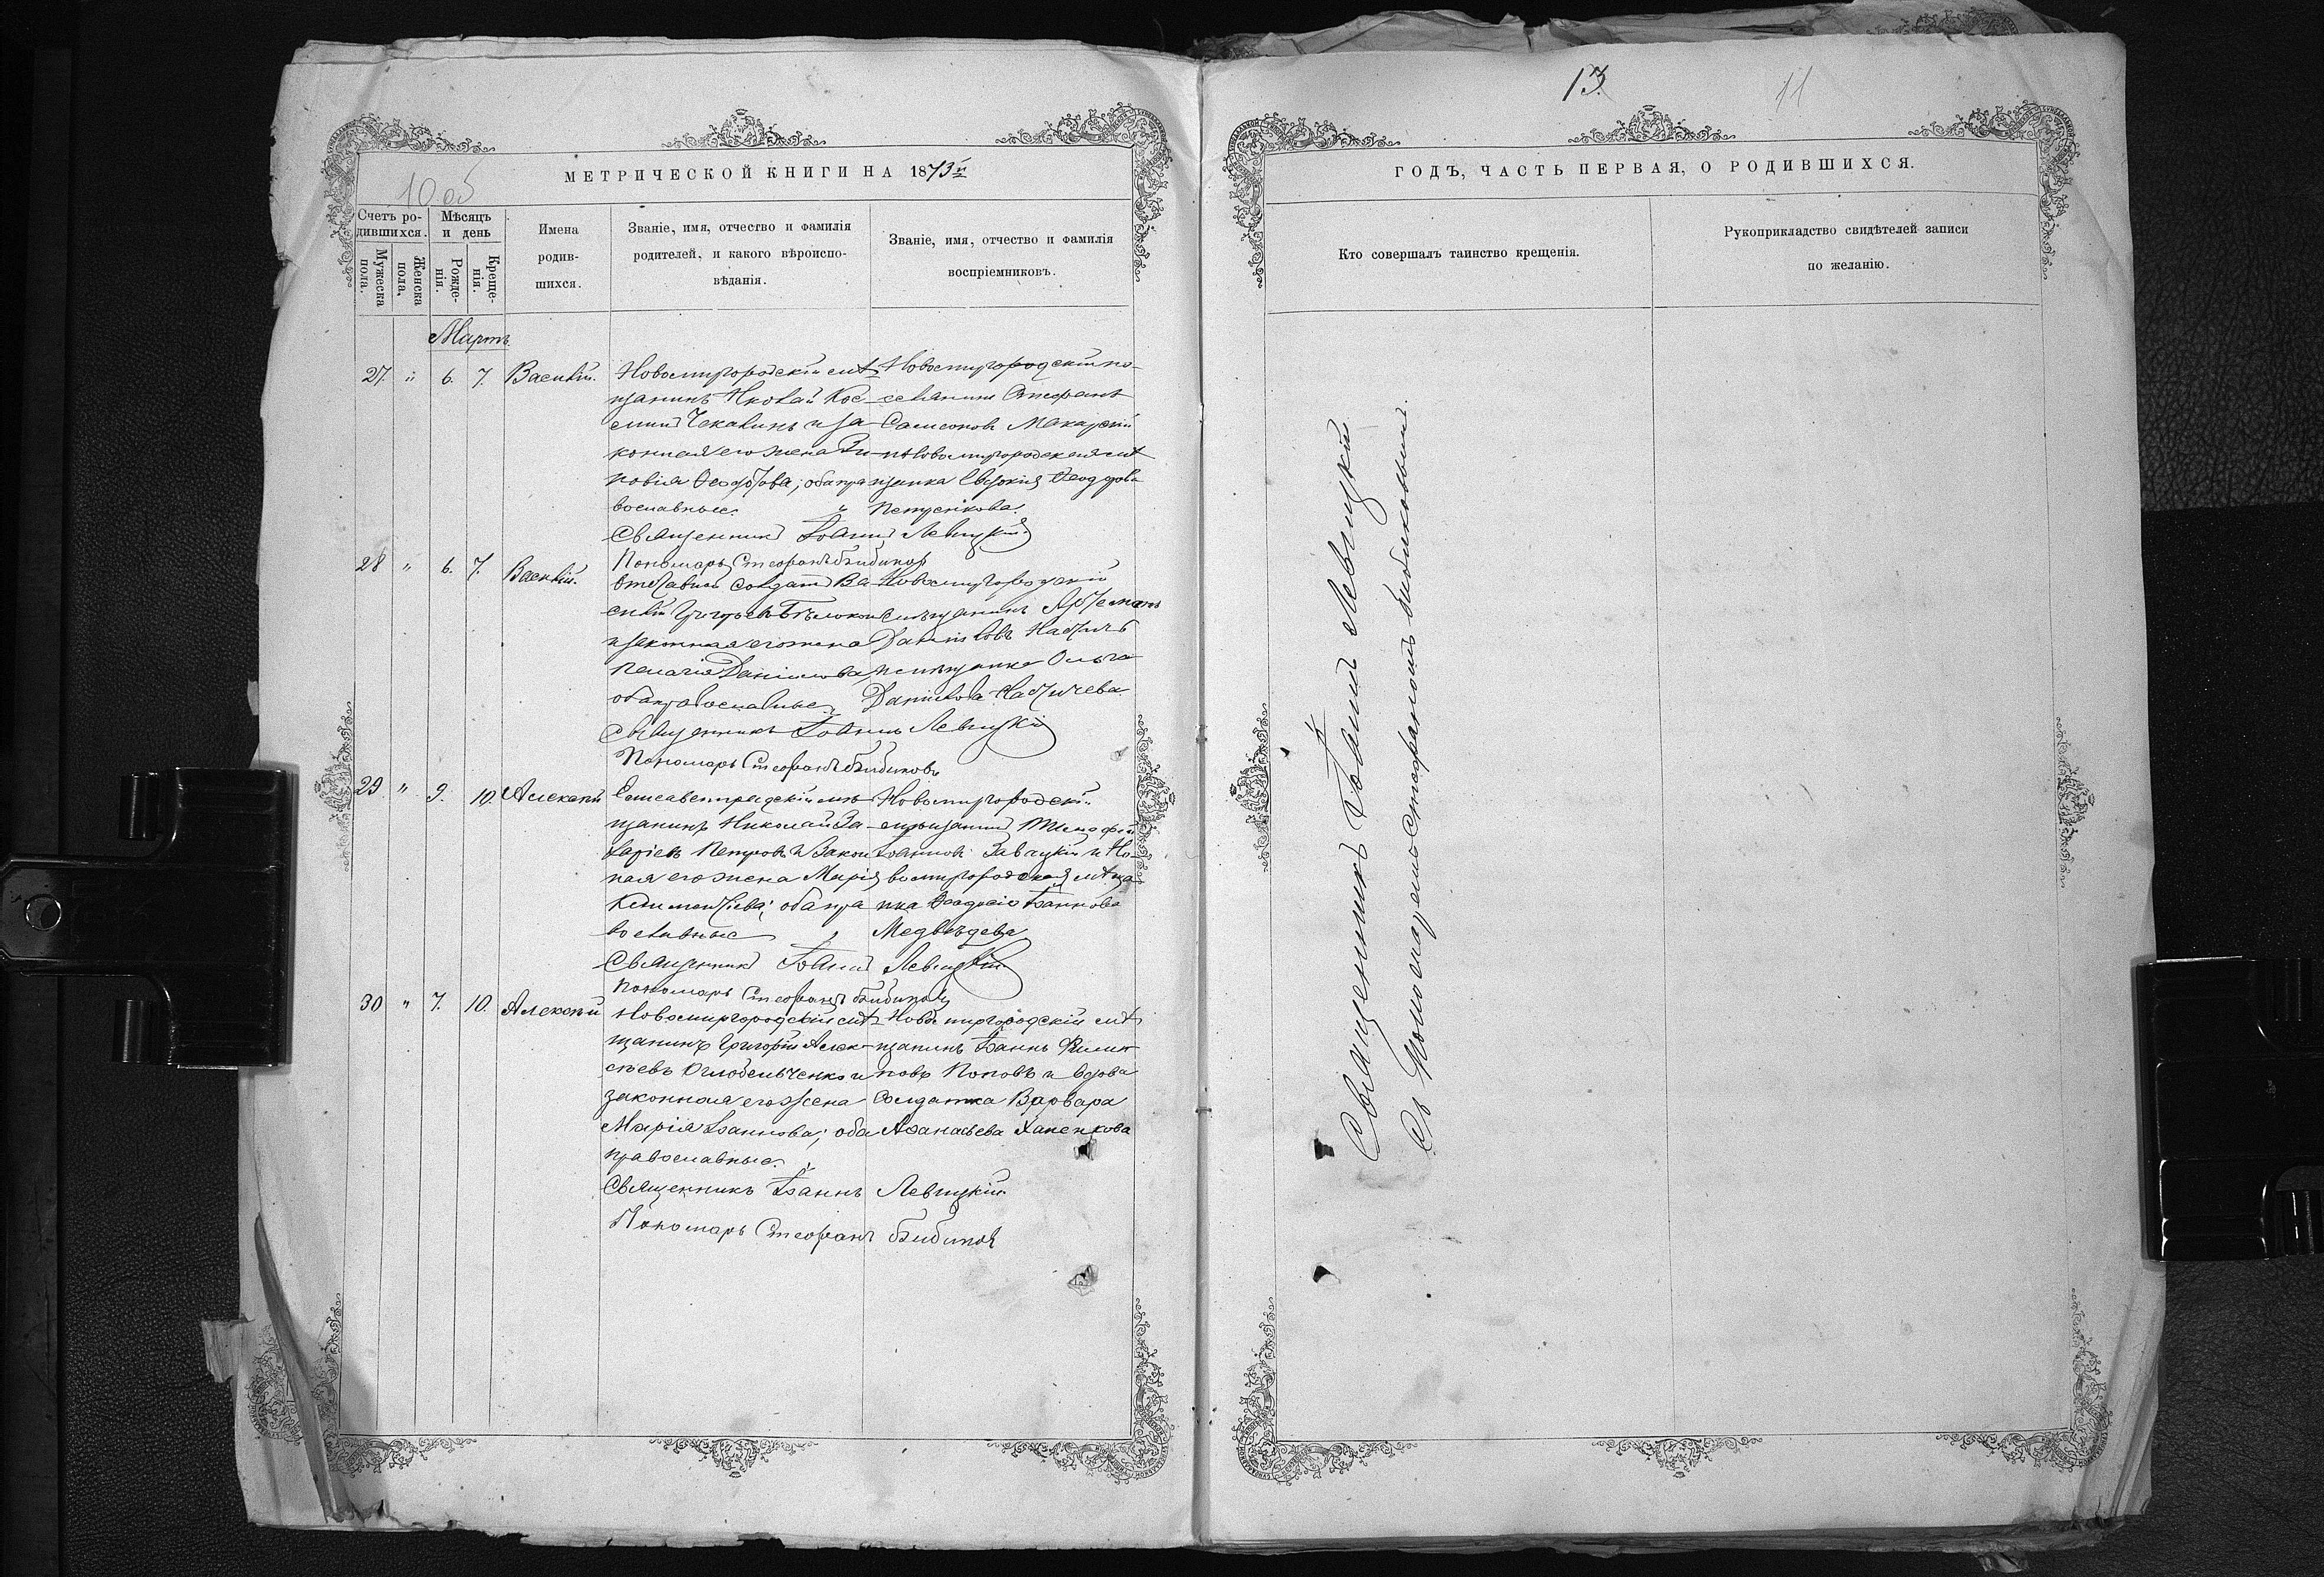 МЕТРИЧЕСКОЙ КНИГИ НА 1873й
10 об
Счетъ ро-
дившихся.
Мужеска
пола.
Женска
пола.
Мѣсяцъ
и день
Рожде-
нія.
Креще-
нія.
Имена
родив-
шихся.
Званіе, имя, отчество и фамилія
родителей, и какого вѣроиспо-
вѣданія.
Званіе, имя, отчество и фамилія
воспріемниковъ.
Мартъ.
27. " 6. 7. Василій.
Новомиргородскій мѣ
щанинъ
и за
конная его жена Зи
новія Ѳеодорова; оба пра
вославные.
Новомиргородскій по-
селянинъ Стефанъ
Самсоновъ
и Новомиргородская мѣ
щанка Евдокія Ѳеодорова
Петренкова.
Священникъ Іоаннъ Левицкій
Пономарь Стефанъ Бибиковъ
28 " 6. 7. Василій.
Отставной солдатъ Ва
силій Григорьевъ
и законная его жена
Пелагія Даніилова
оба православные.
Новомиргородскій
мѣщанинъ
Даніиловъ
и мѣщанка Ольга
Данилова
Священникъ Іоаннъ Левицкій
Пономарь Стефанъ Бибиковъ
29 " 9. 10. Алексѣй
Елисаветградскій мѣ
щанинъ Николай За
харіевъ Петровъ и закон
ная его жена Марія
Климентіева; оба пра
вославные
Новомиргородскій
мѣщанинъ Тимофей
Іоанновъ Завацкій и Но-
вомиргородская мѣща
нка Іоаннова
Медвѣдева
Священникъ Іоаннъ Левицкій
Пономарь Стефанъ Бибиковъ
30 " 7. 10. Алексѣй
Новомиргородскій мѣ
щанинъ Григорій Алек-
сѣевъ Оглобельченко и
законная его жена
Марія Іоаннова; оба
православные.
Новомиргородскій мѣ
щанинъ Іоаннъ Филип
повъ Поповъ и вдова
солдатка Варвара
Аѳанасьева Ханенкова
Священникъ Іоаннъ Левицкій
Пономарь Стефанъ Бибиковъ
13.
11
ГОДЪ, ЧАСТЬ ПЕРВАЯ, О РОДИВШИХСЯ.
Кто совершалъ таинство крещенія.
Рукоприкладство свидѣтелей записи
по желанію.
Священникъ Іоаннъ Левицкій
Съ Пономаремъ Стефаномъ Бибиковымъ.